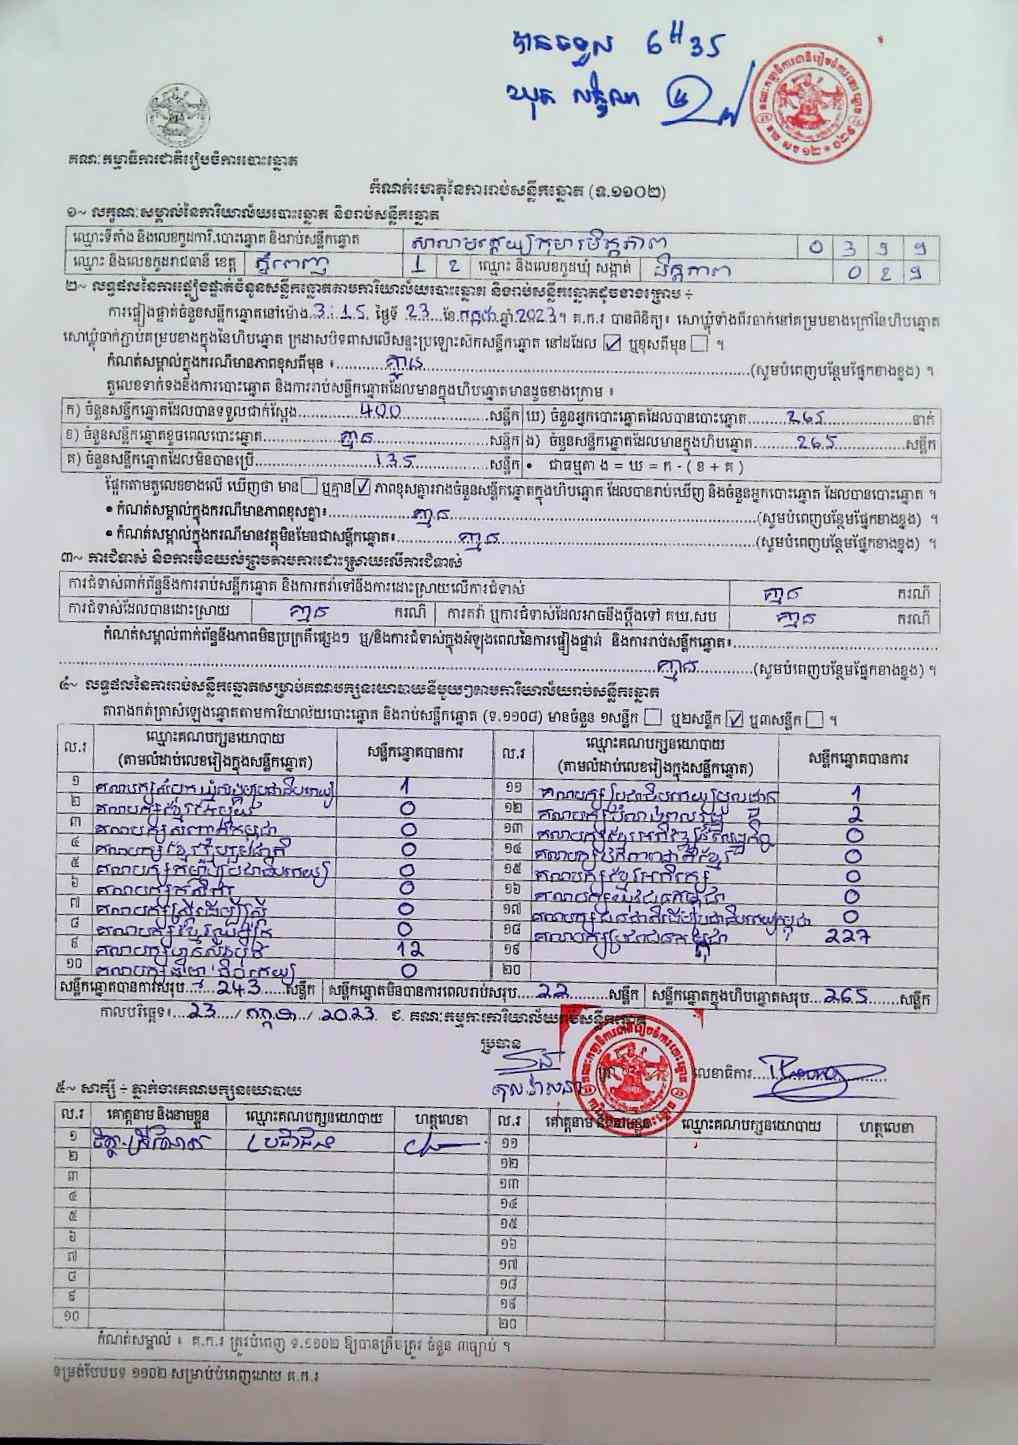 បានទទួល 6H35
គណៈកម្មាធិការជាតិរៀបចំការបោះឆ្នោត
កំណត់ហេតុនៃការរាប់សន្លឹកឆ្នោត (ទ.១១០២)
១~ លក្ខណៈសម្គាល់នៃការិយាល័យបោះឆ្នោត និងរាប់សន្លឹកឆ្នោត
ឈ្មោះទីតាំង និងលេខកូដការិ.បោះឆ្នោត និងរាប់សន្លឹកឆ្នោត សាលាមត្តេយ្យកុមារមិត្តភាព 0 3 9 9
ឈ្មោះ និងលេខកូដរាជធានី ខេត្ត ភ្នំពេញ 1 2 ឈ្មោះ និងលេខកូដឃុំ សង្កាត់ មិត្តភាព 0 2 9
២~ លទ្ធផលនៃការផ្ទៀងផ្ទាត់ចំនួនសន្លឹកឆ្នោតតាមការិយាល័យបោះឆ្នោត និងរាប់សន្លឹកឆ្នោតដូចខាងក្រោម ÷
ការផ្ទៀងផ្ទាត់ចំនួនសន្លឹកឆ្នោតនៅម៉ោង 3:15 ថ្ងៃទី 23 ខែ កក្កដា ឆ្នាំ 2023។ គ.ក.រ បានពិនិត្យ៖ សោឃ្លុំទាំងពីរចាក់នៅគម្របខាងក្រៅនៃហិបឆ្នោត
សោឃ្លុំចាក់ភ្ជាប់គម្របខាងក្នុងនៃហិបឆ្នោត ក្រដាសបិទពាសលើសន្ទះប្រឡោះស៊កសន្លឹកឆ្នោត នៅដដែល ☑ ឬខុសពីមុន ☐ ។
កំណត់សម្គាល់ក្នុងករណីមានភាពខុសពីមុន ៖ គ្មាន (សូមបំពេញបន្ថែមផ្នែកខាងខ្នង) ។
តួលេខទាក់ទងនឹងការបោះឆ្នោត និងការរាប់សន្លឹកឆ្នោតដែលមានក្នុងហិបឆ្នោតមានដូចខាងក្រោម ៖
ក) ចំនួនសន្លឹកឆ្នោតដែលបានទទួលជាក់ស្តែង 400 សន្លឹក ឃ) ចំនួនអ្នកបោះឆ្នោតដែលបានបោះឆ្នោត 265 នាក់
ខ) ចំនួនសន្លឹកឆ្នោតខូចពេលបោះឆ្នោត គ្មាន សន្លឹក ង) ចំនួនសន្លឹកឆ្នោតដែលមានក្នុងហិបឆ្នោត 265 សន្លឹក
គ) ចំនួនសន្លឹកឆ្នោតដែលមិនបានប្រើ 135 សន្លឹក • ជាធម្មតា ង = ឃ = ក - ( ខ + គ )
ផ្អែកតាមតួលេខខាងលើ ឃើញថា មាន ☐ ឬគ្មាន ☑ ភាពខុសគ្នារវាងចំនួនសន្លឹកឆ្នោតក្នុងហិបឆ្នោត ដែលបានរាប់ឃើញ និងចំនួនអ្នកបោះឆ្នោត ដែលបានបោះឆ្នោត ។
• កំណត់សម្គាល់ក្នុងករណីមានភាពខុសគ្នា៖ គ្មាន (សូមបំពេញបន្ថែមផ្នែកខាងខ្នង) ។
• កំណត់សម្គាល់ក្នុងករណីមានវត្ថុមិនមែនជាសន្លឹកឆ្នោត៖ គ្មាន (សូមបំពេញបន្ថែមផ្នែកខាងខ្នង) ។
៣~ ការជំទាស់ និងការមិនយល់ព្រមតាមការដោះស្រាយលើការជំទាស់
ការជំទាស់ពាក់ព័ន្ធនឹងការរាប់សន្លឹកឆ្នោត និងការតវ៉ាទៅនឹងការដោះស្រាយលើការជំទាស់ គ្មាន ករណី
ការជំទាស់ដែលបានដោះស្រាយ គ្មាន ករណី ការតវ៉ា ឬការជំទាស់ដែលអាចនឹងប្តឹងទៅ គឃ.សប គ្មាន ករណី
កំណត់សម្គាល់ពាក់ព័ន្ធនឹងភាពមិនប្រក្រតីផ្សេងៗ ឬ/និងការជំទាស់ក្នុងអំឡុងពេលនៃការផ្ទៀងផ្ទាត់ និងការរាប់សន្លឹកឆ្នោត៖
គ្មាន (សូមបំពេញបន្ថែមផ្នែកខាងខ្នង) ។
៤~ លទ្ធផលនៃការរាប់សន្លឹកឆ្នោតសម្រាប់គណបក្សនយោបាយនីមួយៗតាមការិយាល័យរាប់សន្លឹកឆ្នោត
តារាងកត់ត្រាសំឡេងឆ្នោតតាមការិយាល័យបោះឆ្នោត និងរាប់សន្លឹកឆ្នោត (ទ.១១០៨) មានចំនួន ១សន្លឹក ☐ ឬ២សន្លឹក ☑ ឬ៣សន្លឹក ☐ ។
ល.រ ឈ្មោះគណបក្សនយោបាយ (តាមលំដាប់លេខរៀងក្នុងសន្លឹកឆ្នោត) សន្លឹកឆ្នោតបានការ ល.រ ឈ្មោះគណបក្សនយោបាយ (តាមលំដាប់លេខរៀងក្នុងសន្លឹកឆ្នោត) សន្លឹកឆ្នោតបានការ
១ គណបក្សសំបុកឃ្មុំសង្គមប្រជាធិបតេយ្យ 1 ១១ គណបក្សប្រជាធិបតេយ្យមូលដ្ឋាន 1
២ គណបក្សខ្មែរតែមួយ 0 ១២ គណបក្ស 2
៣ គណបក្សសញ្ជាតិកម្ពុជា 0 ១៣ គណបក្ស 0
៤ គណបក្សខ្មែររួបរួមជាតិ 0 ១៤ គណបក្សឯកភាពជាតិខ្មែរ 0
៥ គណបក្សកម្លាំងប្រជាធិបតេយ្យ 0 ១៥ គណបក្សខ្មែរអភិរក្ស 0
៦ គណបក្សកសិករ 0 ១៦ គណបក្សយុវជនកម្ពុជា 0
៧ គណបក្សស្ត្រីដើម្បីស្ត្រី 0 ១៧ គណបក្ស 0
៨ គណបក្សខ្មែរឈប់ក្រ 0 ១៨ គណបក្សប្រជាជនកម្ពុជា 227
៩ គណបក្សហ្វ៊ុនស៊ិនប៉ិច 12 ១៩
១០ គណបក្សធម្មាធិបតេយ្យ 0 ២០
សន្លឹកឆ្នោតបានការសរុប 243 សន្លឹក សន្លឹកឆ្នោតមិនបានការពេលរាប់សរុប 22 សន្លឹក សន្លឹកឆ្នោតក្នុងហិបឆ្នោតសរុប 265 សន្លឹក
កាលបរិច្ឆេទ៖ 23 / កក្កដា / 2023 ជ. គណៈកម្មការការិយាល័យរាប់សន្លឹកឆ្នោត
ប្រធាន
លេខាធិការ
៥~ សាក្សី ÷ ភ្នាក់ងារគណបក្សនយោបាយ
ល.រ គោត្តនាម និងនាមខ្លួន ឈ្មោះគណបក្សនយោបាយ ហត្ថលេខា ល.រ គោត្តនាម និងនាមខ្លួន ឈ្មោះគណបក្សនយោបាយ ហត្ថលេខា
១ ប្រជាជន ១១
២ ១២
៣ ១៣
៤ ១៤
៥ ១៥
៦ ១៦
៧ ១៧
៨ ១៨
៩ ១៩
១០ ២០
កំណត់សម្គាល់ ៖ គ.ក.រ ត្រូវបំពេញ ទ.១១០២ ឱ្យបានត្រឹមត្រូវ ចំនួន ៣ច្បាប់ ។
ទម្រង់បែបបទ ១១០២ សម្រាប់បំពេញដោយ គ.ក.រ